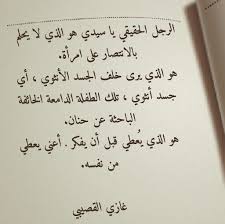 الرجل الحقيقي يا سيدي هو الذي لا يحلم
بالانتصار على امرأة.
هو الذي يرى خلف الجسد الأنثوي ، أي
جسد أنثوي ، تلك الطفلة الدامعة الخائفة
الباحثة عن حنان.
هو الذي يُعطي قبل أن يفكر . أعني يعطي
من نفسه.
غازي القصيبي